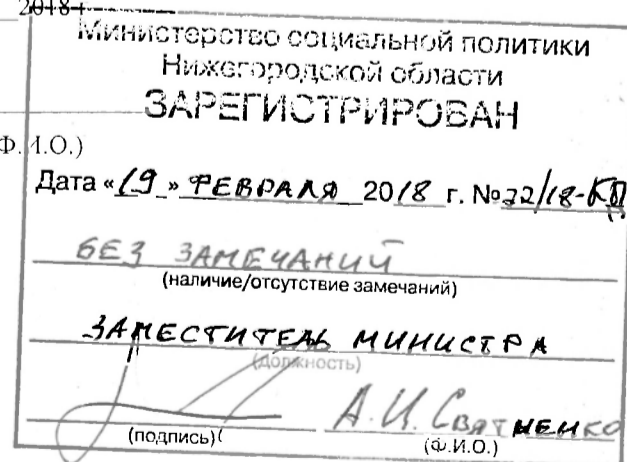 2018 г.
Министерство социальной политики
Нижегородской области
ЗАРЕГИСТРИРОВАН
Ф.И.О.)
Дата «19» ФЕВРАЛЯ 2018 г. №
БЕЗ ЗАМЕЧАНИЙ
(наличие/отсутствие замечаний)
ЗАМЕСТИТЕЛЬ МИНИСТРА
(должность)
А.И.
(подпись)
(Ф.И.О.)